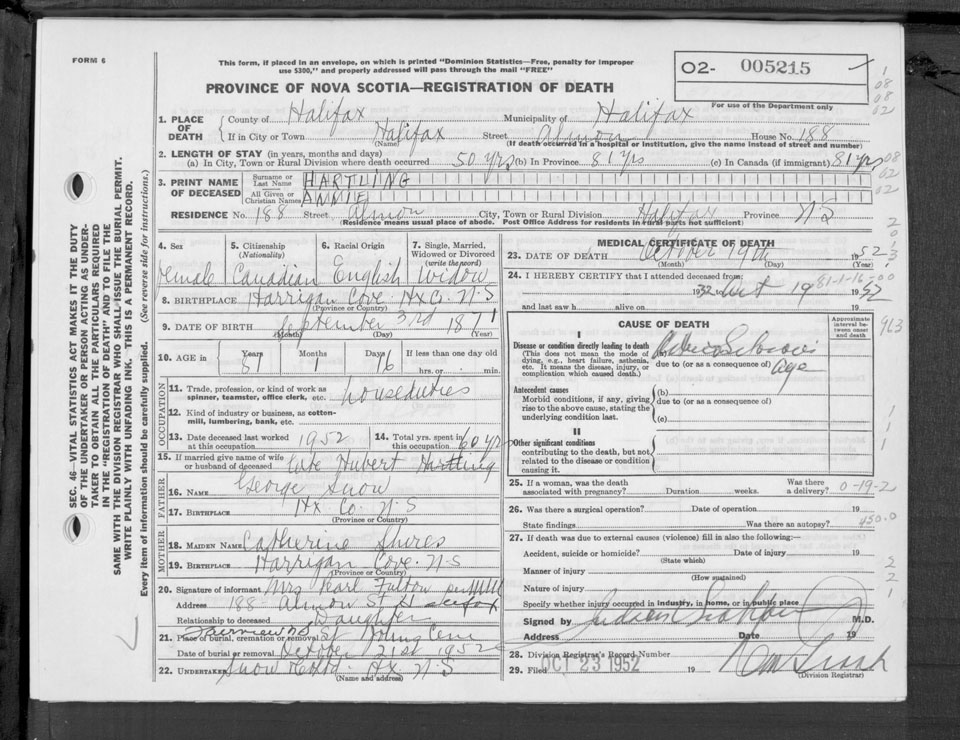 FORM 6
This form, if placed in an envelope, on which is printed "Dominion Statistics—Free, penalty for improper
use $300," and properly addressed will pass through the mail "FREE"
O2- 005215
For use of the Department only
PROVINCE OF NOVA SCOTIA—REGISTRATION OF DEATH
1. PLACE OF DEATH
County of Halifax Municipality of Halifax
If in City or Town Halifax Street Almon House No. 188
(Name) (If death occurred in a hospital or institution, give the name instead of street and number)
2. LENGTH OF STAY (in years, months and days)
(a) In City, Town or Rural Division where death occurred 50 yrs (b) In Province 81 yrs (c) In Canada (if immigrant) 81 yrs
3. PRINT NAME OF DECEASED
Surname or Last Name HARTLING
All Given or Christian Names ANNIE
RESIDENCE No. 188 Street Almon City, Town or Rural Division Halifax Province N S
(Residence means usual place of abode. Post Office Address for residents in rural parts not sufficient)
4. Sex 5. Citizenship (Nationality) 6. Racial Origin 7. Single, Married, Widowed or Divorced (write the word)
Female Canadian English Widow
8. BIRTHPLACE Harrigan Cove Hx Co. N.S
(Province or Country)
9. DATE OF BIRTH September 3rd 1871
(Month) (Day) (Year)
10. AGE in Years Months Days If less than one day old
81 1 16 hrs. or min.
OCCUPATION
11. Trade, profession, or kind of work as
spinner, teamster, office clerk, etc. houseduties
12. Kind of industry or business, as cotton-
mill, lumbering, bank, etc.
13. Date deceased last worked at this occupation 1952
14. Total yrs. spent in this occupation 60 yrs
15. If married give name of wife
or husband of deceased Late Hubert Hartling
FATHER
16. NAME George Snow
17. BIRTHPLACE Hx Co. N S
(Province or Country)
MOTHER
18. MAIDEN NAME Catherine Shires
19. BIRTHPLACE Harrigan Cove N-S
(Province or Country)
20. Signature of informant Mrs Pearl Fulton
Address 188 Almon St Halifax
Relationship to deceased Daughter
21. Place of burial, cremation or removal Fairview Cem
Date of burial or removal October 21st 1952
22. UNDERTAKER Snow Hx N S
(Name and address)
MEDICAL CERTIFICATE OF DEATH
23. DATE OF DEATH October 19th 1952
(Month) (Day) (Year)
24. I HEREBY CERTIFY that I attended deceased from:
1932 to Oct 19 1952
81-1-16
and last saw h alive on 19
CAUSE OF DEATH
Approximate interval between onset and death
I
Disease or condition directly leading to death
(This does not mean the mode of dying, e.g., heart failure, asthenia, etc. It means the disease, injury, or complication which caused death.)
(a)
due to (or as a consequence of) age
Antecedent causes
Morbid conditions, if any, giving rise to the above cause, stating the underlying condition last.
(b)
due to (or as a consequence of)
(c)
II
Other significant conditions
contributing to the death, but not related to the disease or condition causing it.
25. If a woman, was the death
associated with pregnancy? Duration weeks. Was there a delivery? 0-19-2
26. Was there a surgical operation? Date of operation 19
State findings Was there an autopsy? 450.0
27. If death was due to external causes (violence) fill in also the following:—
Accident, suicide or homicide? Date of injury 19
(State which)
Manner of injury
(How sustained)
Nature of injury
Specify whether injury occurred in industry, in home, or in public place
Signed by M.D.
Address Date 19
28. Division Registrar's Record Number
29. Filed OCT 23 1952
(Division Registrar)
SEC. 46—VITAL STATISTICS ACT MAKES IT THE DUTY
OF THE UNDERTAKER OR PERSON ACTING AS UNDER-
TAKER TO OBTAIN ALL THE PARTICULARS REQUIRED
IN THE "REGISTRATION OF DEATH" AND TO FILE THE
SAME WITH THE DIVISION REGISTRAR WHO SHALL ISSUE THE BURIAL PERMIT.
WRITE PLAINLY WITH UNFADING INK. THIS IS A PERMANENT RECORD.
Every item of information should be carefully supplied. (See reverse side for instructions.)